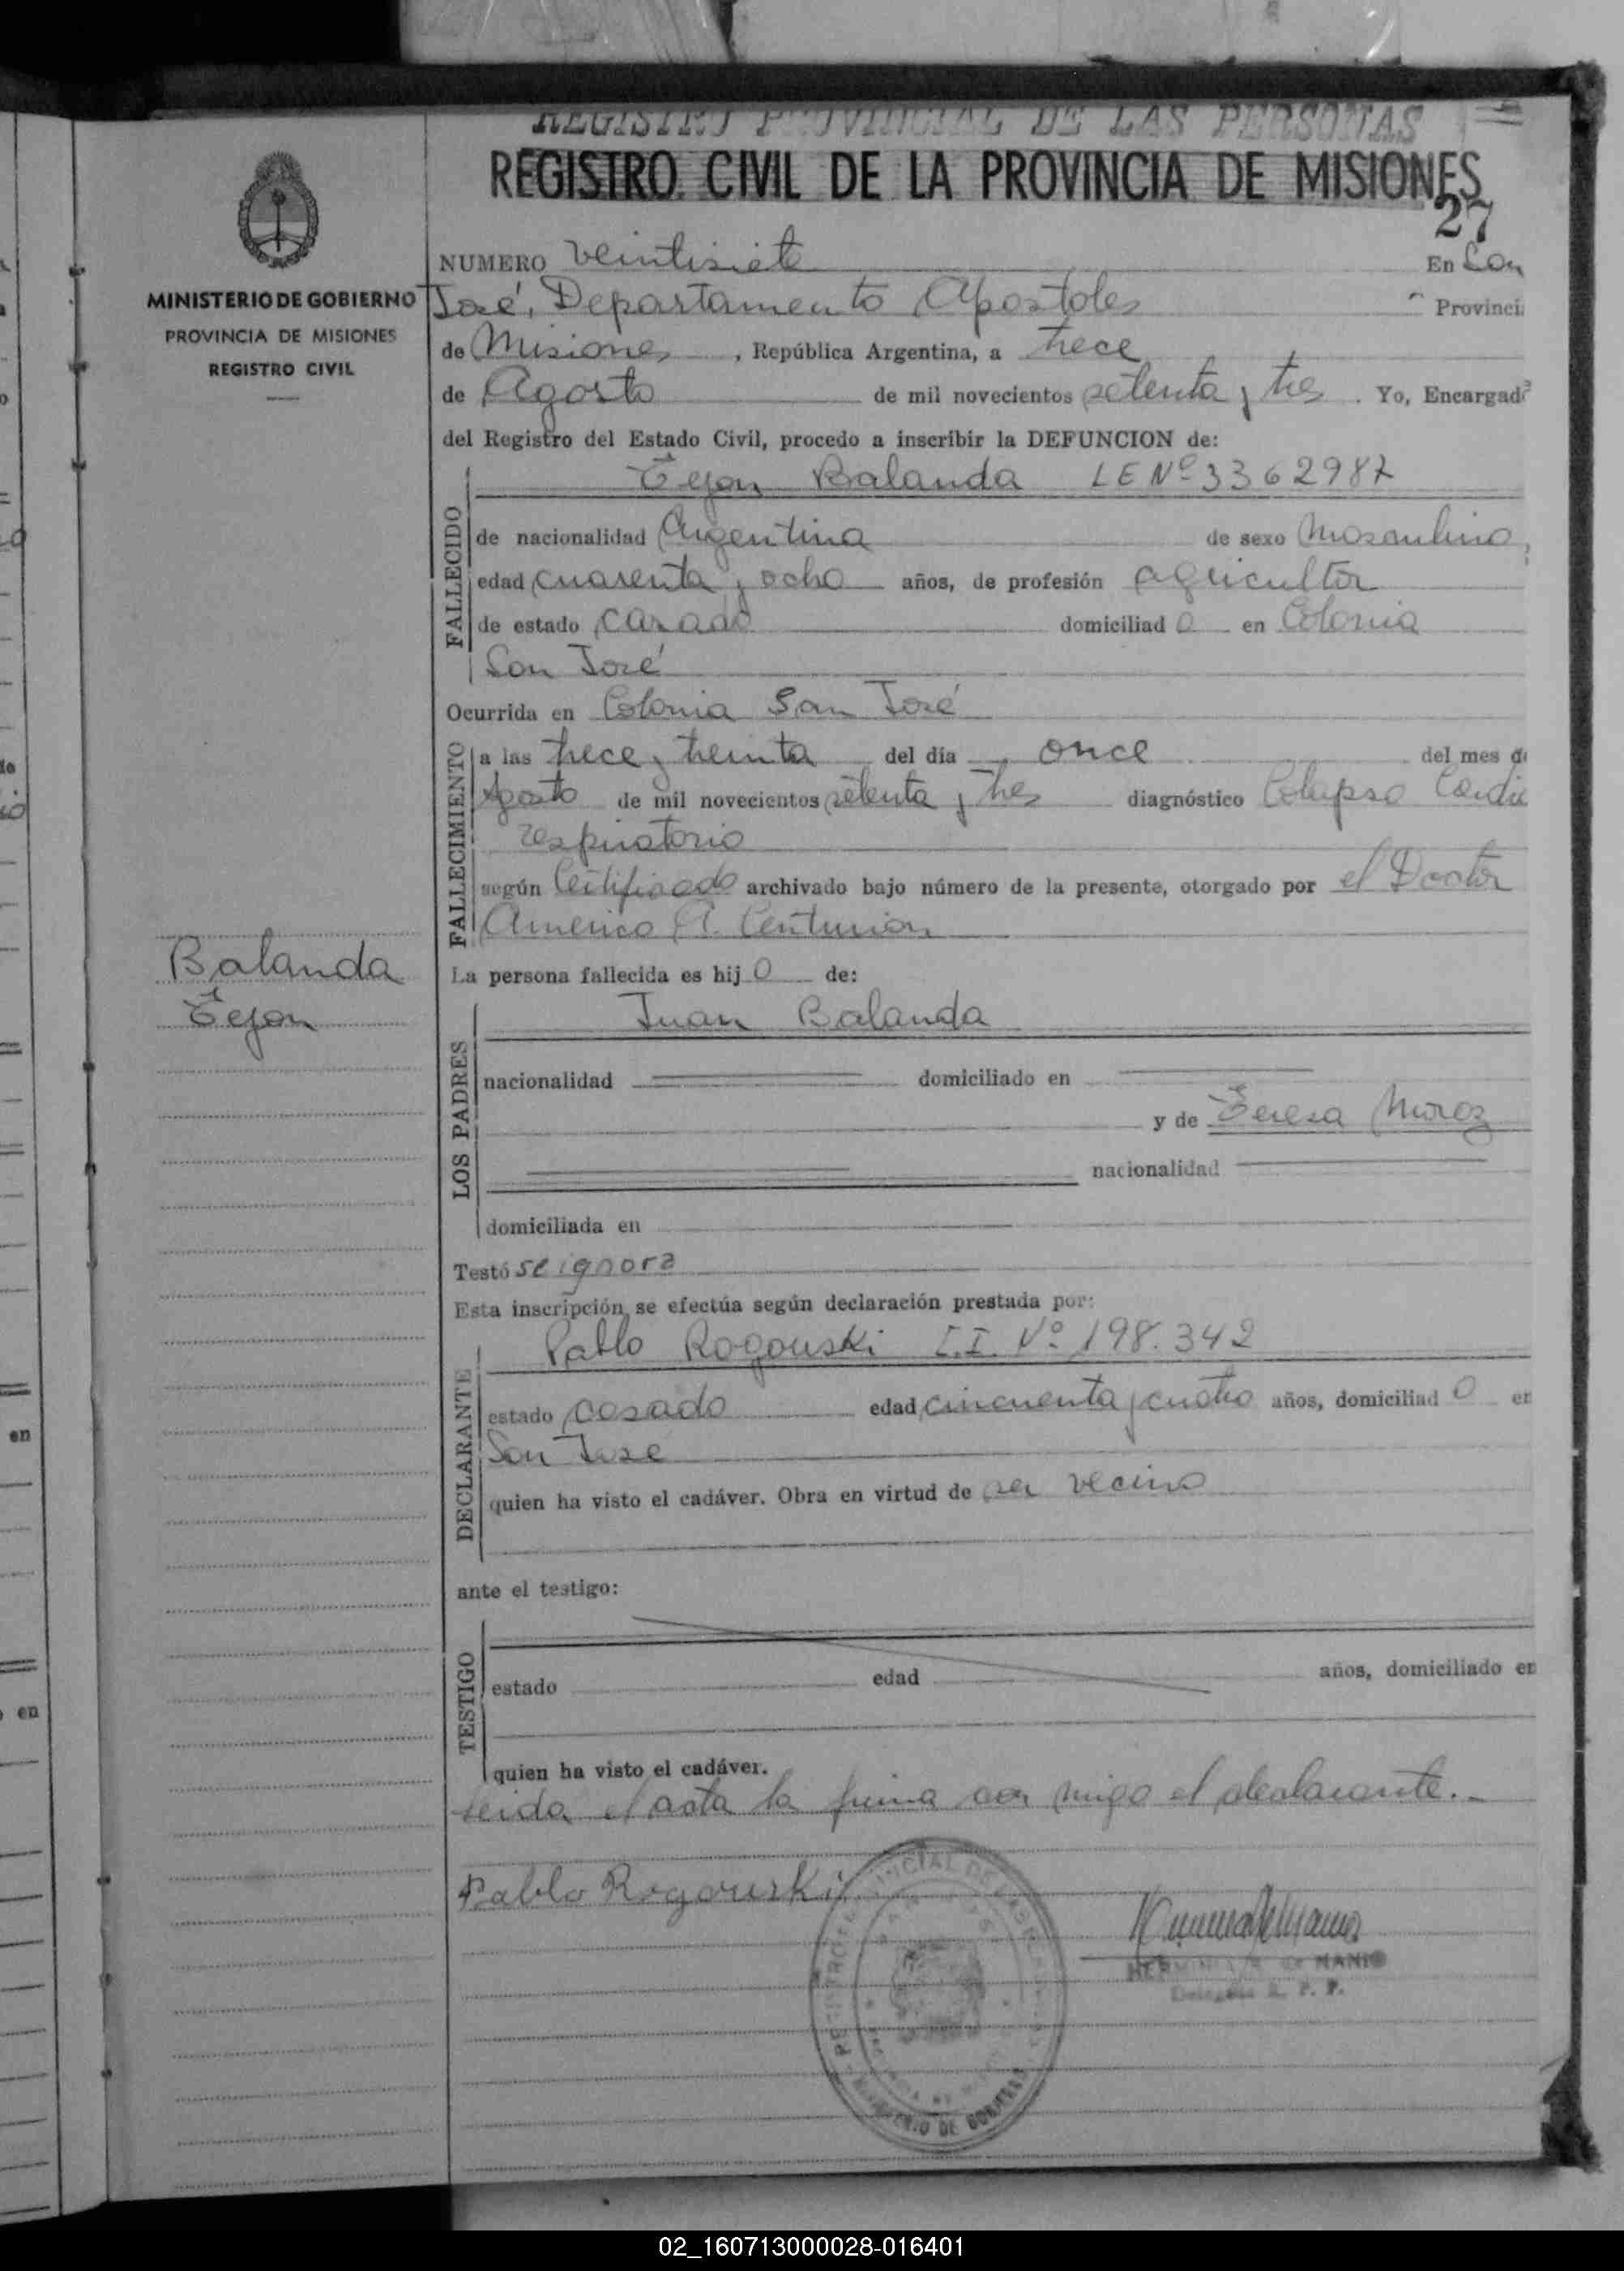 REGISTRO PROVINCIAL DE LAS PERSONAS
REGISTRO CIVIL DE LA PROVINCIA DE MISIONES
27
MINISTERIO DE GOBIERNO
PROVINCIA DE MISIONES
REGISTRO CIVIL
NUMERO veintisiete En San
José, Departamento Apostoles Provinci
de Misiones, República Argentina, a trece
de Agosto de mil novecientos setenta y tres. Yo, Encargad
del Registro del Estado Civil, procedo a inscribir la DEFUNCION de:
FALLECIDO
Tejon Balanda LE Nº 3362987
de nacionalidad Argentina de sexo Masculino,
edad cuarenta y ocho años, de profesión agricultor
de estado casado domiciliad o en Colonia
San José
Ocurrida en Colonia San José
FALLECIMIENTO
a las trece y treinta del día once del mes d
Agosto de mil novecientos setenta y tres diagnóstico Colapso Cardio
respiratorio
según Certificado archivado bajo número de la presente, otorgado por el Doctor
Americo A. Centurion
Balanda
Tejon
La persona fallecida es hij o de:
LOS PADRES
Juan Balanda
nacionalidad domiciliado en
y de Teresa Muroz
nacionalidad
domiciliada en
Testó se ignora
Esta inscripción se efectúa según declaración prestada por:
DECLARANTE
Pablo Rogouski C.I. Nº 198.342
estado casado edad cincuenta y cuatro años, domiciliad o en
San Jose
quien ha visto el cadáver. Obra en virtud de ser vecino
ante el testigo:
TESTIGO
estado edad años, domiciliado en
quien ha visto el cadáver.
Leida el acta la firma con migo el declarante.-
Pablo Rogouski
DE MANIO
Delegada R. P. P.
MINISTERIO DE GOBIERNO
en
en
02_160713000028-016401